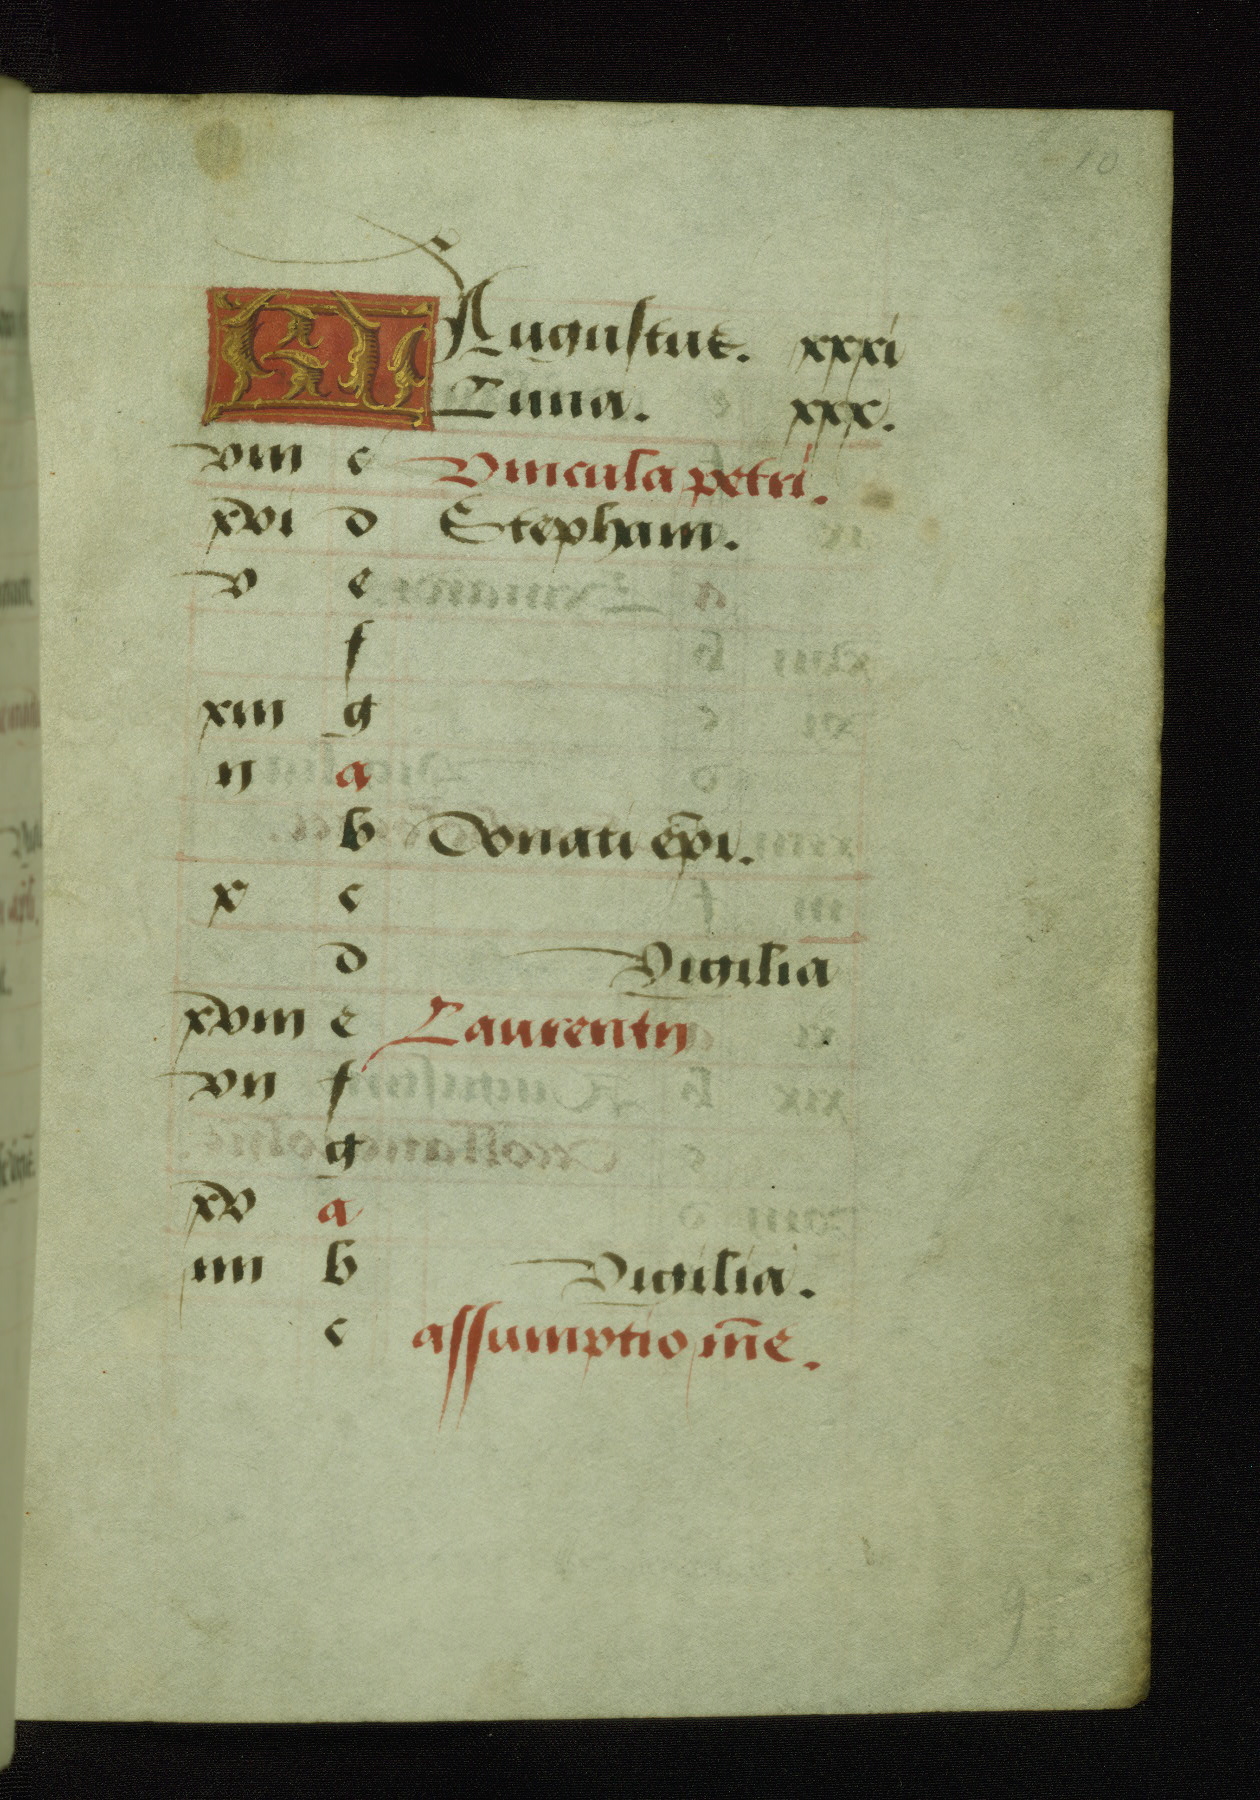 10
KL Augustus. xxxi
Luna. xxx.
viii c Vincula petri.
xvi d Stephani.
v e
f
xiii g
ii a
b Donati ep̄i.
x c
d Vigilia
xviii e Laurentii
vii f
g
xv a
iiii b Vigilia.
c assumptio m̄e.
9